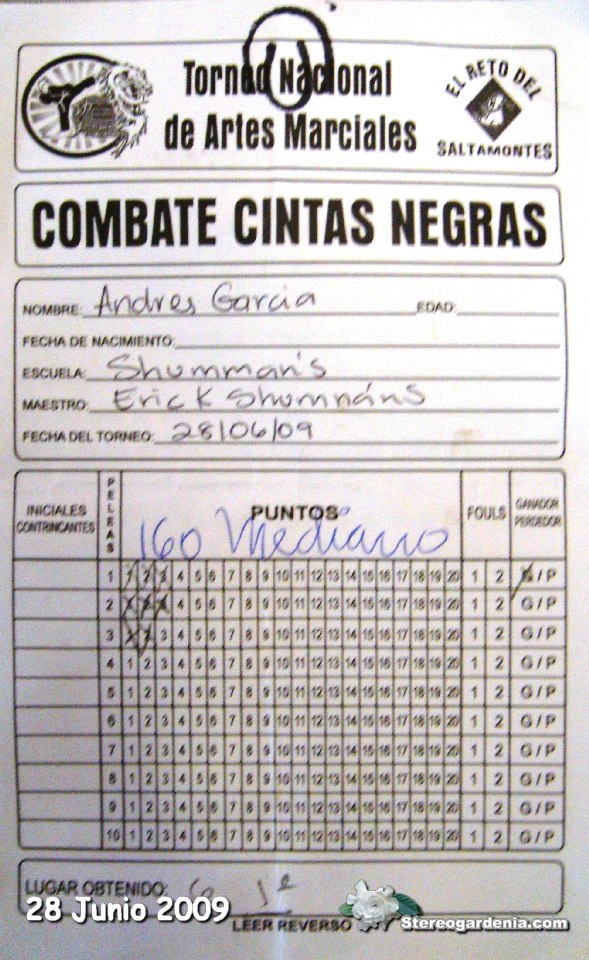 Torneo Nacional
de Artes Marciales
EL RETO DEL
SALTAMONTES
COMBATE CINTAS NEGRAS
NOMBRE: Andres Garcia EDAD:
FECHA DE NACIMIENTO:
ESCUELA: Shumman's
MAESTRO: Erick Shumnáns
FECHA DEL TORNEO: 28/06/09
INICIALES CONTRINCANTES PELEAS PUNTOS FOULS GANADOR PERDEDOR
160 Mediano
1 1 2 3 4 5 6 7 8 9 10 11 12 13 14 15 16 17 18 19 20 1 2 G / P
2 1 2 3 4 5 6 7 8 9 10 11 12 13 14 15 16 17 18 19 20 1 2 G / P
3 1 2 3 4 5 6 7 8 9 10 11 12 13 14 15 16 17 18 19 20 1 2 G / P
4 1 2 3 4 5 6 7 8 9 10 11 12 13 14 15 16 17 18 19 20 1 2 G / P
5 1 2 3 4 5 6 7 8 9 10 11 12 13 14 15 16 17 18 19 20 1 2 G / P
6 1 2 3 4 5 6 7 8 9 10 11 12 13 14 15 16 17 18 19 20 1 2 G / P
7 1 2 3 4 5 6 7 8 9 10 11 12 13 14 15 16 17 18 19 20 1 2 G / P
8 1 2 3 4 5 6 7 8 9 10 11 12 13 14 15 16 17 18 19 20 1 2 G / P
9 1 2 3 4 5 6 7 8 9 10 11 12 13 14 15 16 17 18 19 20 1 2 G / P
10 1 2 3 4 5 6 7 8 9 10 11 12 13 14 15 16 17 18 19 20 1 2 G / P
LUGAR OBTENIDO: 1º
28 Junio 2009
LEER REVERSO
Stereogardenia.com